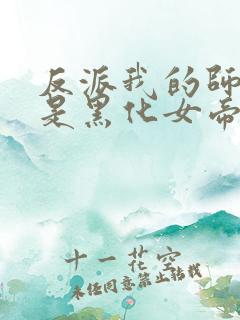 反派我的師
是黑化女帝
十一花空
未经同意禁止转载